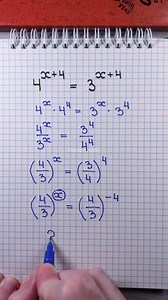 4^{x+4} = 3^{x+4}
4^x · 4^4 = 3^x · 3^4
\frac{4^x}{3^x} = \frac{3^4}{4^4}
(\frac{4}{3})^x = (\frac{3}{4})^4
(\frac{4}{3})^{ⓧ} = (\frac{4}{3})^{-4}